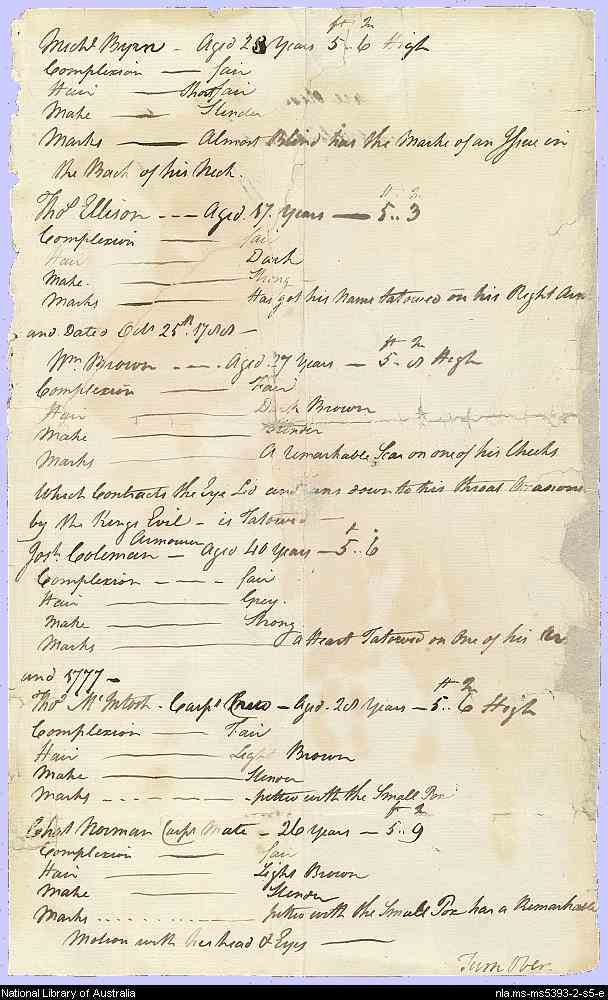 ft In
Michl Byrn - Aged 28 Years 5.. 6 High
Complexion — fair
Hair — Short fair
Make — Slender
Marks — Almost Blind has the Marke of an Issue in
the Back of his Neck.
Thos Ellison --- Aged 17 Years — 5.. 3
Complexion — fair
Hair — Dark
Make. — Strong
Marks — Has got his Name tatowed on his Right Arm
and Dated Octr 25th 1788 -
ft In
Wm Brown --- Aged 27 Years — 5.. 8 High
Complexion — Fair
Hair — Dark Brown
Make — Slender
Marks — A remarkable Scar on one of his Cheeks
Which Contracts the Eye Lid and runs down to his throat Occasioned
by the Kings Evil - is Tatowed -
Josh Coleman Armourer - Aged 40 Years — 5.. 6
Complexion --- fair
Hair — Grey.
Make — Strong
Marks — a Heart Tatowed on One of his
and 5777 -
ft In
Thos McIntosh - Carprs Crew - Aged 28 Years - 5.. 6 High
Complexion — Fair
Hair — Light Brown
Make — Slender
Marks --- pitted with the Small Pox
ft In
Chas Norman Carprs Mate - 26 Years - 5.. 9
Complexion — fair
Hair — Light Brown
Make — Slender
Marks --- pitted with the Small Pox has a Remarkable
Motion with his head & Eyes —
Turn Over.
National Library of Australia nla.ms-ms5393-2-s5-e